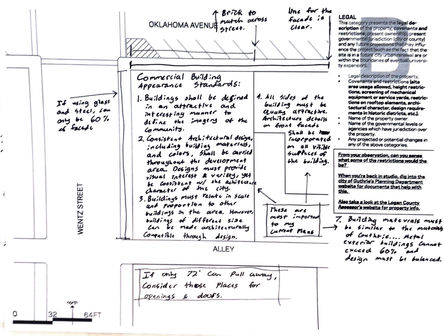 OKLAHOMA AVENUE
Brick to
match across
street.
Use for the
facade is
clear.
If using glass
and steel, can
only be 60%
of facade
Commercial Building
Appearance Standards:
1. Buildings shall be defined
in an attractive and
interesting manner to
define the imagery of the
Community.
2. Consistent Architectural design,
including building materials,
and colors, shall be carried
throughout the development
area. Designs must provide
visual interest & variety, yet
be consistent w/ the architecture
character of the city.
3. Buildings must relate in scale
and proportion to other
buildings in the area. However,
buildings of different size
can be made architecturally
Compatible through design.
4. All sides of
the building must be
equally attractive.
Architecture details
on front facade
Shall be
incorporated
on all visible
surfaces of
the building.
These are
most important
to my
Current Plans
WENTZ STREET
ALLEY
If only 72' can pull away,
Consider those places for
openings & doors.
7. Building materials must
be similar to the materials
of Guthrie.... Metal
exterior buildings cannot
exceed 60% and
design must be balanced.
0 32 64FT
LEGAL
This category presents the legal de-
scription of the property, covenants and
restrictions, present ownership, present
governmental jurisdiction (city or county)
and any future projections that may influ-
ence the project such as the fact that the
site is in a future university expan-
within the boundaries of
versity expansion.
• Legal description of the property.
• Covenants and restrictions (site
area usage allowed, height
restrictions, screening of mechanical
equipment or service yards, restric-
tions on rooftop elements, archi-
tectural character, design require-
ments in historic districts, etc.).
• Name of the property owner.
• Name of the governmental levels or
agencies which have jurisdiction over
the property.
• Any projected or potential changes in
any of the above categories.
From your observation, can you sense
what some of the restrictions would be?
When you're back in studio, dig into the
city of Guthrie's Planning Department
website for documents that help with
this.
Also take a look at the Logan County
Assessor's website for property info.